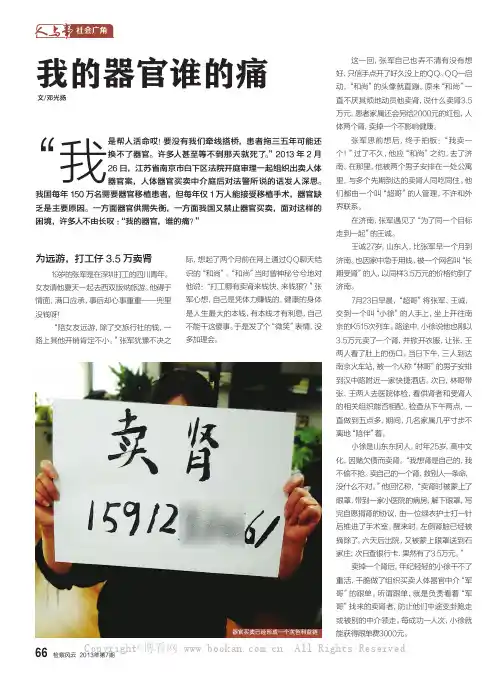 人与事 社会广角
我的器官谁的痛
文/邓光扬
“我是帮人活命哎!要没有我们牵线搭桥,患者拖三五年可能还
换不了器官。许多人甚至等不到那天就死了。”2013年2月
26日,江苏省南京市白下区法院开庭审理一起组织出卖人体
器官案,人体器官买卖中介庭后对法警所说的话发人深思。
我国每年150万名需要器官移植患者,但每年仅1万人能接受移植手术,器官缺
乏是主要原因。一方面器官供需失衡,一方面我国又禁止器官买卖,面对这样的
困境,许多人不由长叹:“我的器官,谁的痛?”
为远游,打工仔3.5万卖肾
19岁的张军是在深圳打工的四川青年。
女友请他夏天一起去西双版纳旅游,他碍于
情面,满口应承,事后却心事重重——兜里
没钱呀!
“陪女友远游,除了交旅行社的钱,一
路上其他开销肯定不小。”张军犹豫不决之
际,想起了两个月前在网上通过QQ聊天结
识的“和尚”。“和尚”当时曾神秘兮兮地对
他说:“打工哪有卖肾来钱快、来钱狠?”张
军心想,自己是凭体力赚钱的,健康的身体
是人生最大的本钱,有本钱才有利息,自己
不能干这傻事,于是发了个“微笑”表情,没
多加理会。
卖肾
15912 61
器官买卖已经形成一个灰色利益链
这一回,张军自己也弄不清有没有想
好,只信手点开了好久没上的QQ。QQ一启
动,“和尚”的头像就直蹦。原来“和尚”一
直不厌其烦地动员他卖肾,说什么卖肾3.5
万元,患者家属还会另给2000元的红包,人
体两个肾,卖掉一个不影响健康。
张军思前想后,终于拍板:“我卖一
个!”过了不久,他应“和尚”之约,去了济
南。在那里,他被两个男子安排在一处公寓
里,与多个先期到达的卖肾人同吃同住。他
们都由一个叫“超哥”的人管理,不许和外
界联系。
在济南,张军遇见了“为了同一个目标
走到一起”的王诚。
王诚27岁,山东人,比张军早一个月到
济南,也因家中急于用钱,被一个网名叫“长
期受肾”的人,以同样3.5万元的价格约到了
济南。
7月23日早晨,“超哥”将张军、王诚,
交到一个叫“小徐”的人手上,坐上开往南
京的K515次列车。路途中,小徐说他也刚以
3.5万元卖了一个肾,并掀开衣服,让张、王
两人看了肚上的伤口。当日下午,三人到达
南京火车站,被一个人称“林哥”的男子安排
到汉中路附近一家快捷酒店。次日,林哥带
张、王两人去医院体检,看供肾者和受肾人
的相关组织能否相配。检查从下午两点,一
直做到五点多,期间,几名家属几乎寸步不
离地“陪伴”着。
小徐是山东东阿人,时年25岁,高中文
化,因赌欠债而卖肾。“我想肾是自己的,我
不偷不抢,卖自己的一个肾,救别人一条命,
没什么不对。”他回忆称,“卖肾时被蒙上了
眼罩,带到一家小医院的病房,解下眼罩,写
完自愿捐肾的协议,由一位绿衣护士打一针
后推进了手术室。醒来时,左侧肾脏已经被
摘除了。六天后出院,又被蒙上眼罩送到石
家庄;次日查银行卡,果然有了3.5万元。”
卖掉一个肾后,年纪轻轻的小徐干不了
重活,干脆做了组织买卖人体器官中介“军
哥”的跟单。所谓跟单,就是负责看着“军
哥”找来的卖肾者,防止他们中途变卦跑走
或被别的中介领走,每成功一人次,小徐就
能获得跟单费3000元。
66 检察风云 2013年第7期
Copyright©博看网 www.bookan.com.cn All Rights Reserved